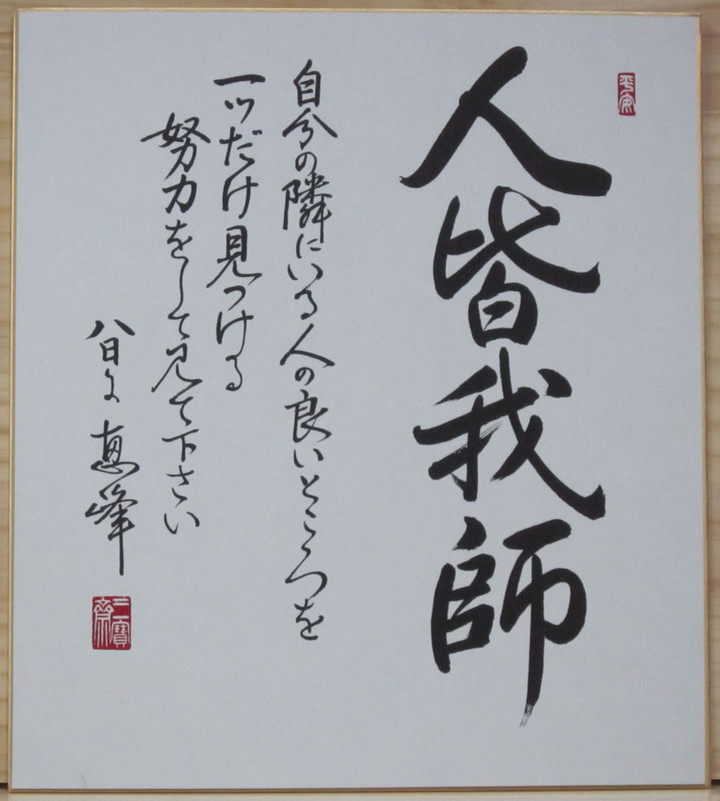 人皆我師
自分の隣にいる人の良いところを
一ツだけ見つける
努力をして見て下さい
恵峰